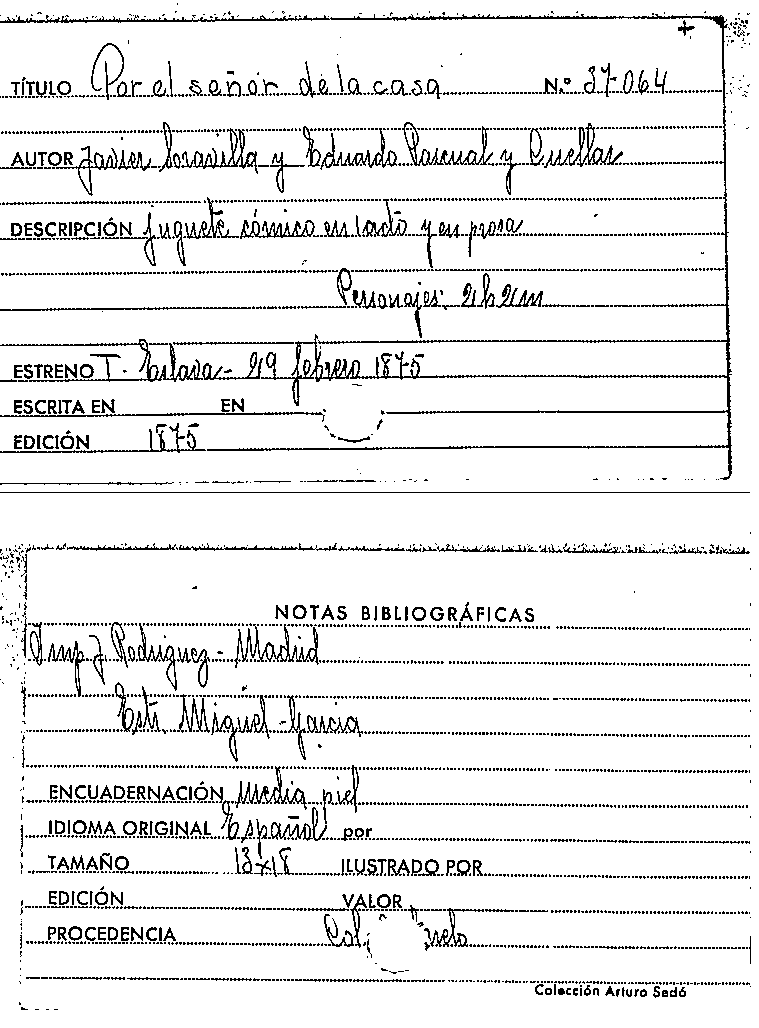 +
TÍTULO Por el señor de la casa N.º 37-064
AUTOR Javier Soravilla y Eduardo Pascual y Cuellar
DESCRIPCIÓN juguete cómico en 1 acto y en prosa
Personajes: 2h 2m
ESTRENO T. Eslava - 29 febrero 1875
ESCRITA EN EN
EDICIÓN 1875
NOTAS BIBLIOGRÁFICAS
Imp J. Rodriguez - Madrid
Miguel - Garcia
ENCUADERNACIÓN Media piel
IDIOMA ORIGINAL Español por
TAMAÑO 13x18 ILUSTRADO POR
EDICIÓN VALOR
PROCEDENCIA Col.
Colección Arturo Sedó